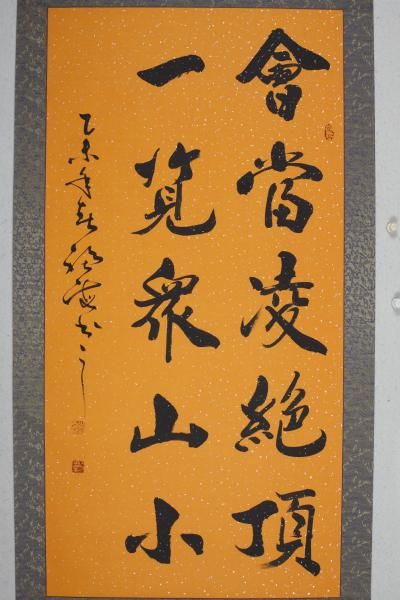 會當凌絕頂
一覽眾山小
乙未年春